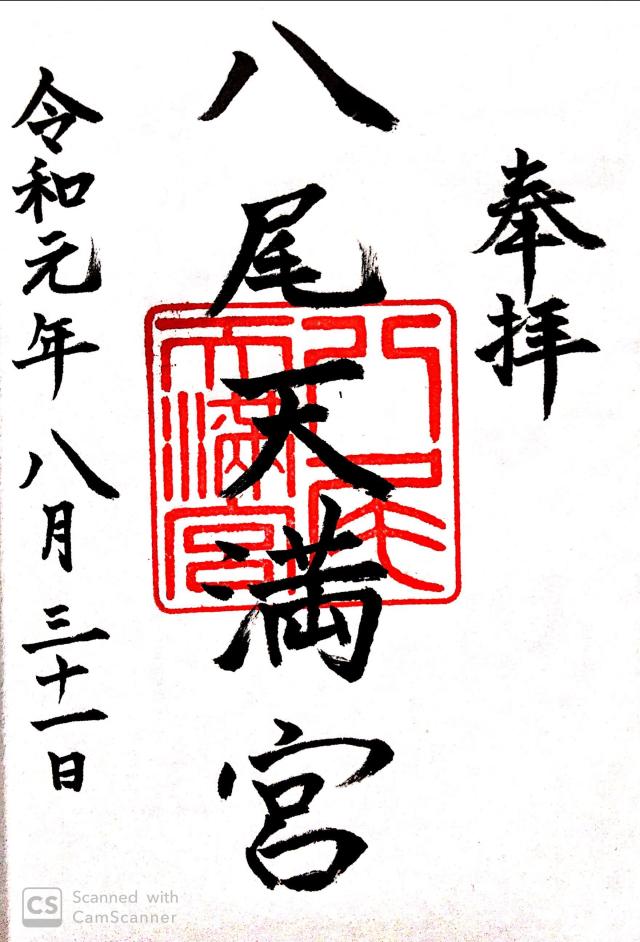 奉拝
八尾天満宮
八尾天満宮
令和元年八月三十一日
CS Scanned with
CamScanner